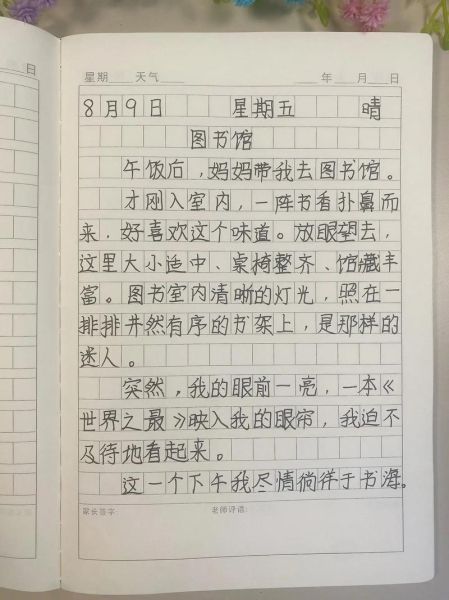 日
星期 天气 年 月 日
8月9日 星期五 晴
图书馆
午饭后，妈妈带我去图书馆。
才刚入室内，一阵书香扑鼻而
来，好喜欢这个味道。放眼望去，
这里大小适中、桌椅整齐、馆藏丰
富。图书室内清晰的灯光，照在一
排排井然有序的书架上，是那样的
迷人。
突然，我的眼前一亮，一本《
世界之最》映入我的眼帘，我迫不
及待地看起来。
这一个下午我尽情徜徉于书海。
家长签字 老师评语: